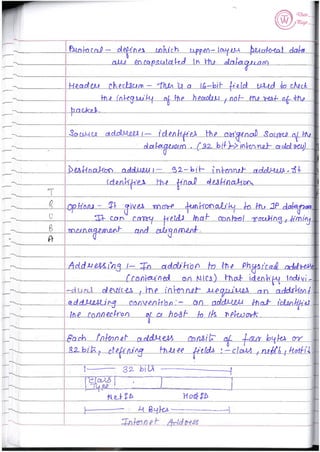 Protocol - defines which upper-layer protocol data
are encapsulated In the datagram
Header checksum - This is a 16-bit field used to check
the integrity of the header, not the rest of the
packet.
Source address :- identifies the original source of the
datagram. (32 bit internet address)
Destination address :- 32-bit internet address. It
identifies the final destination.
Options - It gives more funtionality to the IP datagram
It can carry fields that control routing, timing
management and alignment.
Addressing :- In addition to the Physical address
(contained on NICs) that identify Indivi-
-dual devices, the internet requires an additional
addressing convention:- an address that identifies
the connection of a host to its network
Each Internet address consits of four bytes or
32 bits, defining three fields :- class, netid, Hostid
32 bits
Class
Type
Net ID HostID
4 Bytes
Internet Address